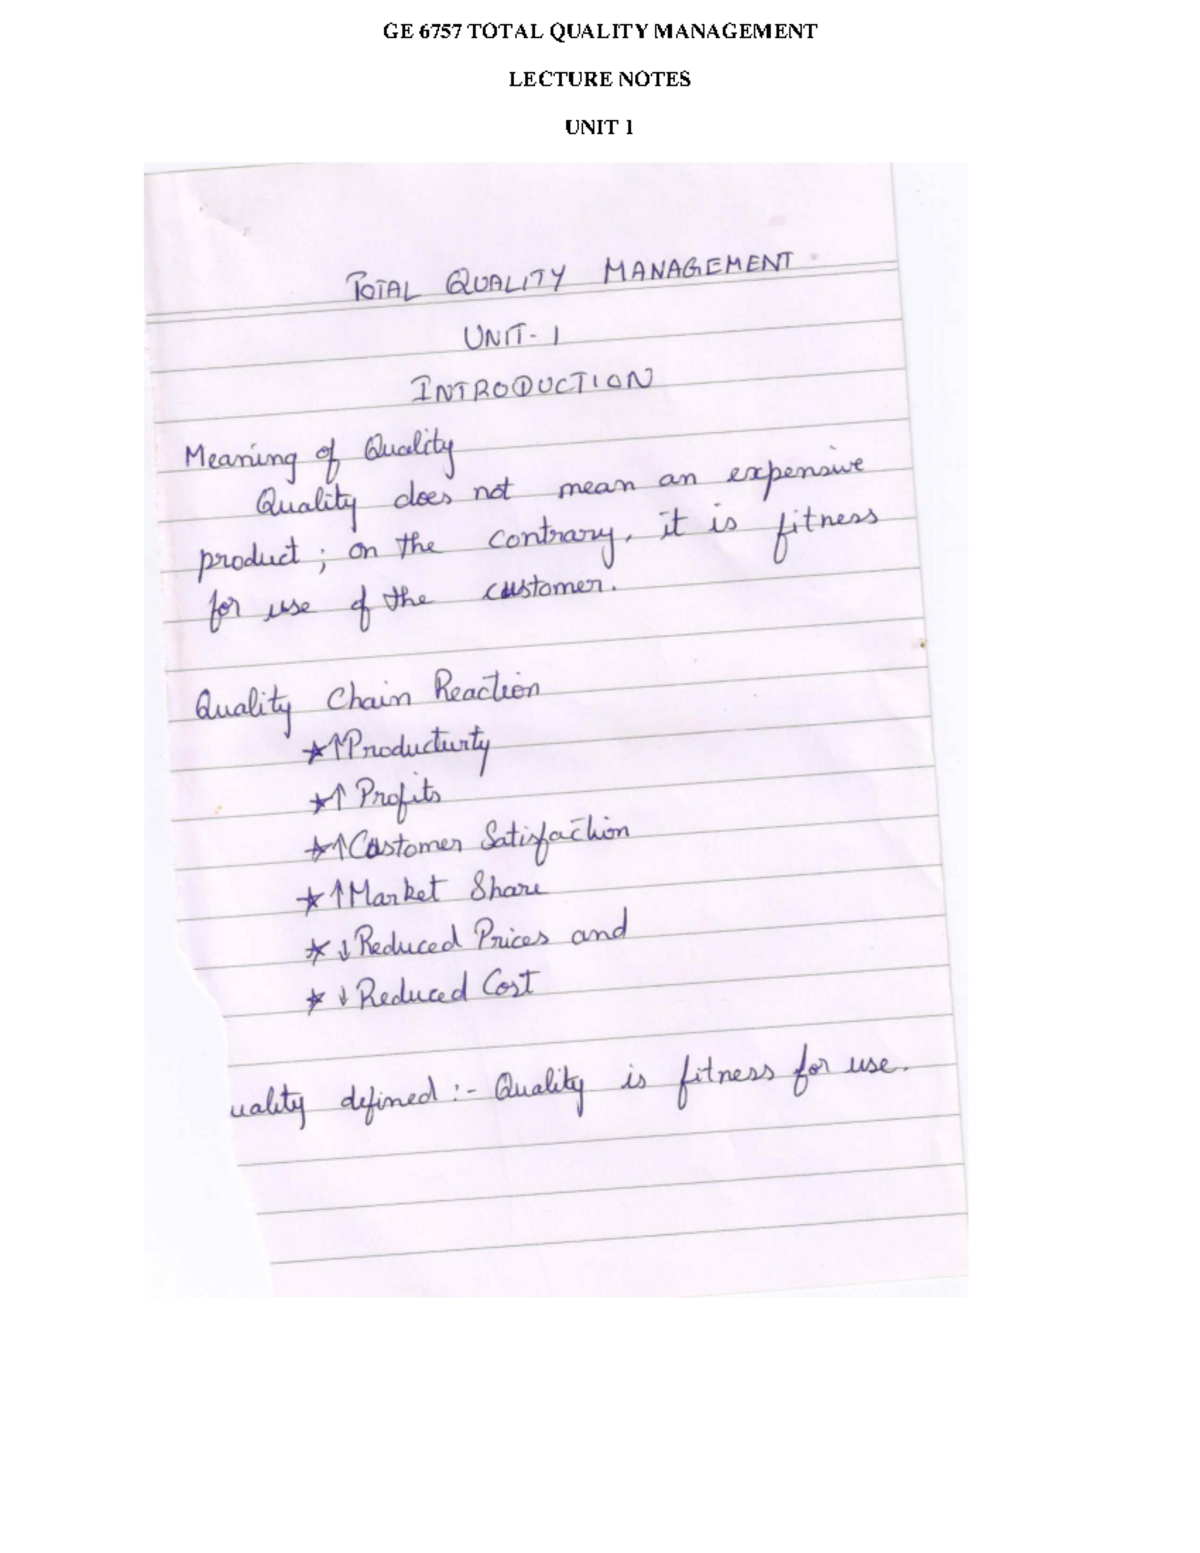 GE 6757 TOTAL QUALITY MANAGEMENT
LECTURE NOTES
UNIT 1
TOTAL QUALITY MANAGEMENT
UNIT- 1
INTRODUCTION
Meaning of Quality
Quality does not mean an expensive
product; on the contrary, it is fitness
for use of the customer.
Quality Chain Reaction
★↑Productivity
★↑ Profits
★↑Customer Satisfaction
★↑Market Share
★↓Reduced Prices and
★↓Reduced Cost
uality defined :- Quality is fitness for use.